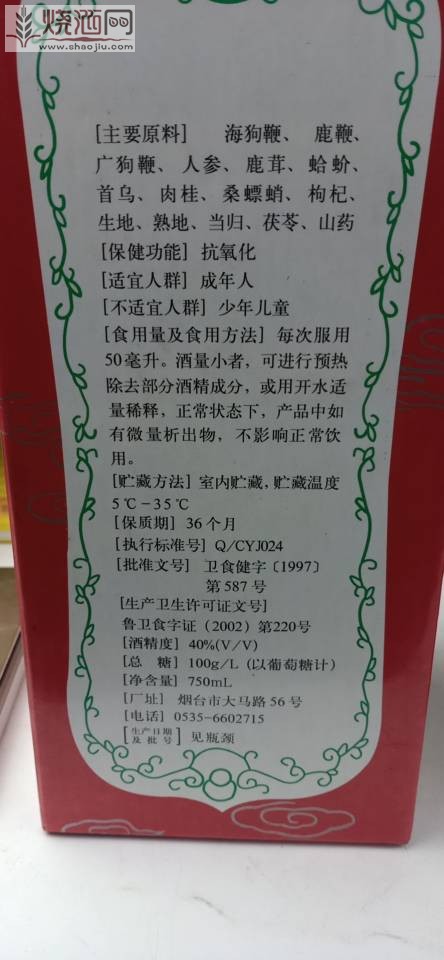 烧酒网
www.shaojiu.com
[主要原料] 海狗鞭、鹿鞭、
广狗鞭、人参、鹿茸、蛤蚧、
首乌、肉桂、桑螵蛸、枸杞、
生地、熟地、当归、茯苓、山药
[保健功能] 抗氧化
[适宜人群] 成年人
[不适宜人群] 少年儿童
[食用量及食用方法] 每次服用
50毫升。酒量小者，可进行预热
除去部分酒精成分，或用开水适
量稀释，正常状态下，产品中如
有微量析出物，不影响正常饮
用。
[贮藏方法] 室内贮藏，贮藏温度
5℃-35℃
[保质期] 36个月
[执行标准号] Q/CYJ024
[批准文号] 卫食健字〔1997〕
第587号
[生产卫生许可证文号]
鲁卫食字证（2002）第220号
[酒精度] 40%(V/V)
[总 糖] 100g/L (以葡萄糖计)
[净含量] 750mL
[厂址] 烟台市大马路56号
[电话] 0535-6602715
[生产日期及批号] 见瓶颈